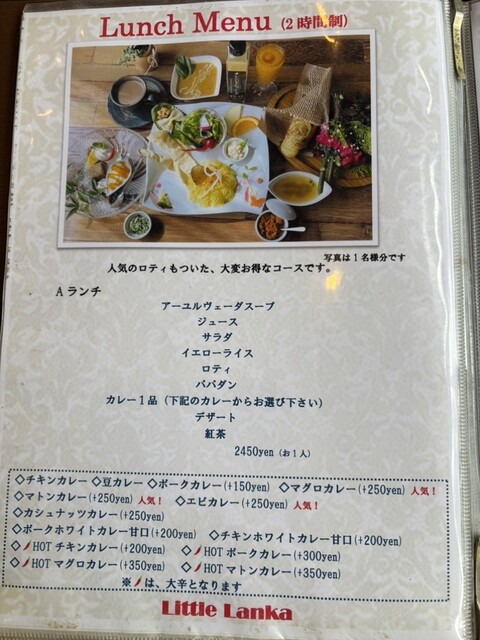 Lunch Menu (2時間制)
写真は1名様分です
人気のロティもついた、大変お得なコースです。
Aランチ
アーユルヴェーダスープ
ジュース
サラダ
イエローライス
ロティ
パパダン
カレー1品（下記のカレーからお選び下さい）
デザート
紅茶
2450yen（お1人）
◇チキンカレー ◇豆カレー ◇ポークカレー(+150yen) ◇マグロカレー(+250yen) 人気！
◇マトンカレー(+250yen) 人気！ ◇エビカレー(+250yen) 人気！
◇カシュナッツカレー(+250yen)
◇ポークホワイトカレー甘口(+200yen) ◇チキンホワイトカレー甘口(+200yen)
◇🌶HOT チキンカレー(+200yen) ◇🌶HOT ポークカレー(+300yen)
◇🌶HOT マグロカレー(+350yen) ◇🌶HOT マトンカレー(+350yen)
※🌶は、大辛となります
Little Lanka